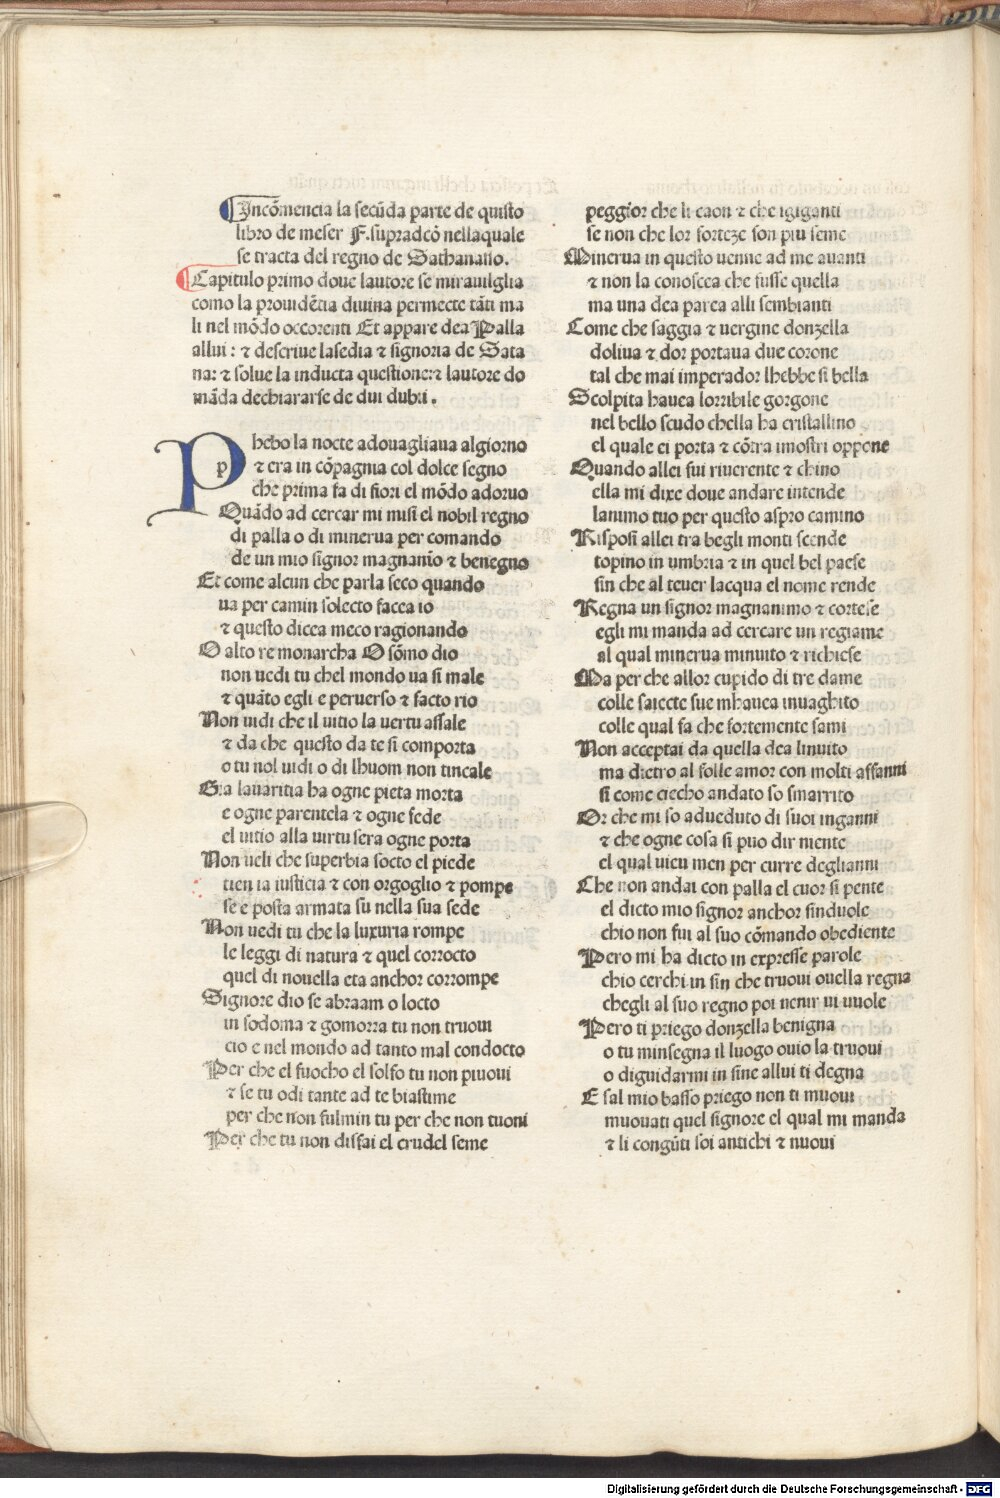 Incōmencia la secūda parte de quisto
libro de meser F. supradcō nellaquale
se tracta del regno de Sathanasso.
Capitulo primo dove lautore se miraviglia
como la providētia divina permecte tāti ma
li nel mōdo occorenti Et appare dea Palla
allui: ⁊ descrive lasedia ⁊ signoria de Sata
na: ⁊ solve la inducta questione: ⁊ lautore do
māda dechiararse de dui dubii.
Phebo la nocte adovagliava algiorno
⁊ era in cōpagnia col dolce segno
che prima fa di fiori el mōdo adoruo
Quādo ad cercar mi misi el nobil regno
di palla o di minerva per comando
de un mio signor magnanīo ⁊ benegno
Et come alcun che parla seco quando
va per camin solecto facea io
⁊ questo dicea meco ragionando
O alto re monarcha O sōmo dio
non vedi tu chel mondo va si male
⁊ quāto egli e perverso ⁊ facto rio
Non vidi che il vitio la vertu assale
⁊ da che questo da te si comporta
o tu nol vidi o di lhuom non tincale
Gia lavaritia ha ogne pieta morta
e ogne parentela ⁊ ogne fede
el vitio alla virtu sera ogne porta
Non veli che superbia socto el piede
tien la iusticia ⁊ con orgoglio ⁊ pompe
se e posta armata su nella sua sede
Non vedi tu che la luxuria rompe
le leggi di natura ⁊ quel corrocto
quel di novella eta anchor corrompe
Signore dio se abraam o locto
in sodoma ⁊ gomorra tu non truovi
cio e nel mondo ad tanto mal condocto
Per che el fuocho el solfo tu non piuovi
⁊ se tu odi tante ad te biastime
per che non fulmin tu per che non tuoni
Per che tu non disfai el crudel seme
peggior che li caon ⁊ che igiganti
se non che lor forteze son piu seme
Minerva in questo venne ad me avanti
⁊ non la conoscea che fusse quella
ma una dea parea alli sembianti
Come che saggia ⁊ vergine donzella
doliva ⁊ dor portava due corone
tal che mai imperador lhebbe si bella
Scolpita havea lorribile gorgone
nel bello scudo chella ha cristallino
el quale ei porta ⁊ cōtra imostri oppone
Quando allei fui riverente ⁊ chino
ella mi dixe dove andare intende
lanimo tuo per questo aspro camino
Risposi allei tra begli monti scende
topino in umbria ⁊ in quel bel paese
sin che al tever lacqua el nome rende
Regna un signor magnanimo ⁊ cortese
egli mi manda ad cercare un regiame
al qual minerva minvito ⁊ richiese
Ma per che allor cupido di tre dame
colle saiecte sue mhavea invaghito
colle qual fa che fortemente sami
Non acceptai da quella dea linvito
ma dietro al folle amor con molti affanni
si come ciecho andato so smarrito
Or che mi so adveduto di suoi inganni
⁊ che ogne cosa si puo dir niente
el qual vieu men per curre deglianni
Che non andai con palla el cuor si pente
el dicto mio signor anchor sinduole
chio non fui al suo cōmando obediente
Pero mi ha dicto in expresse parole
chio cerchi in sin che truovi quella regna
chegli al suo regno poi venir vi vuole
Pero ti priego donzella benigna
o tu minsegna il luogo ovio la truovi
o diguidarmi in sine allui ti degna
E sal mio basso priego non ti muovi
muovati quel signore el qual mi manda
⁊ li congūti soi antichi ⁊ nuovi
Digitalisierung gefördert durch die Deutsche Forschungsgemeinschaft - DFG